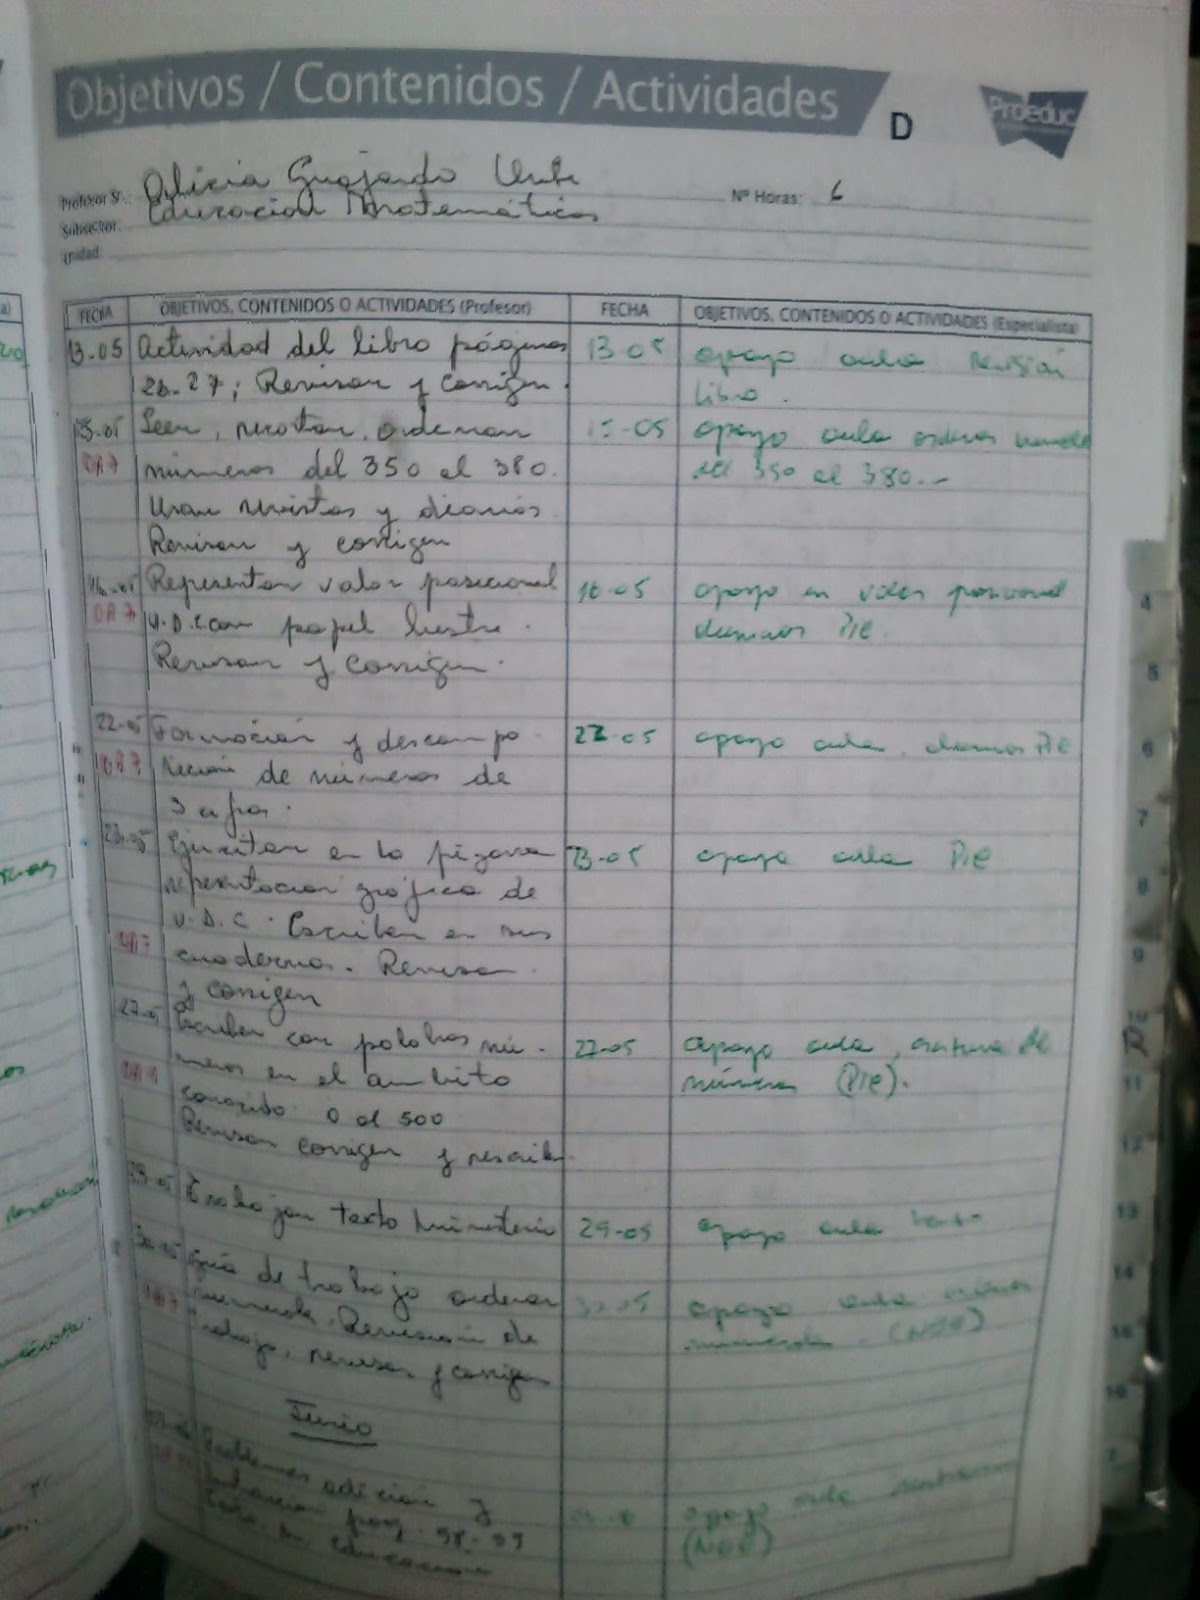 Objetivos / Contenidos / Actividades
D
Proeduc
Profesor Sr.: Alicia Guajardo
Nº Horas: 6
Subsector: Educación Matemáticas
Unidad:
FECHA
OBJETIVOS, CONTENIDOS O ACTIVIDADES (Profesor)
FECHA
OBJETIVOS, CONTENIDOS O ACTIVIDADES (Especialista)
13.05 Actividad del libro páginas
26-27; Revisan y corrigen.
13-05 apoyo aula revisión
libro.
15-05 Leen, recortan, ordenan
OA7 números del 350 al 380.
Usan revistas y diarios.
Revisan y corrigen
15-05 apoyo aula ordenar
del 350 al 380.-
16-05 Representan valor posicional
OA7 U.D.C con papel lustre.
Revisan y corrigen.
16-05 apoyo en valor posicional
alumnos Pie.
22-05 Formación y descompo-
OA7 sición de números de
3 cifras.
22-05 apoyo aula. alumnos Pie
23-05 Ejercitan en la pizarra
representación gráfica de
U.D.C. Escriben en sus
OA7 cuadernos. Revisan
y corrigen
23-05 apoyo aula Pie
27-05 Escriben con palabras nú-
meros en el ámbito
conocido 0 al 500
Revisan corrigen y
27-05 apoyo aula, escritura de
números (Pie).
29-05 Trabajan texto ministerio
29-05 apoyo aula texto
30-05 Guía de trabajo ordenar
OA7 Revisión de
trabajo, revisan y corrigen
30-05 apoyo aula
(NEE)
Junio
Problemas adición y
pag. 98-99
Educación
apoyo aula
(NEE)
4
5
6
7
8
9
10
R
11
12
13
14